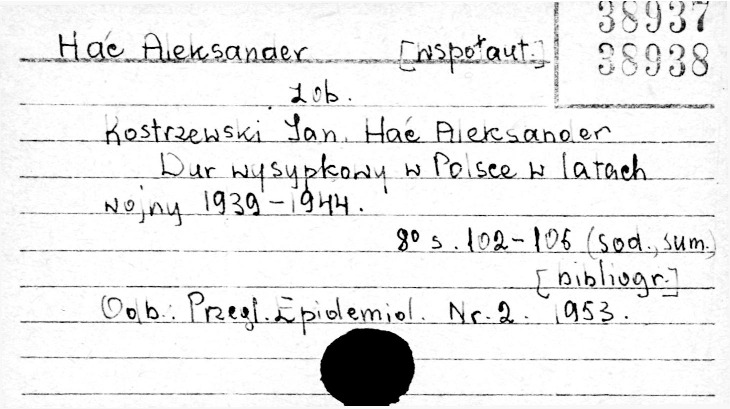 38937
Hać Aleksander [współaut.] 38938
zob.
Kostrzewski Jan, Hać Aleksander
Dur wysypkowy w Polsce w latach
wojny 1939-1944.
8° s. 102-106 (sod., sum.)
[bibliogr.]
Odb.: Przegl. Epidemiol. Nr. 2. 1953.